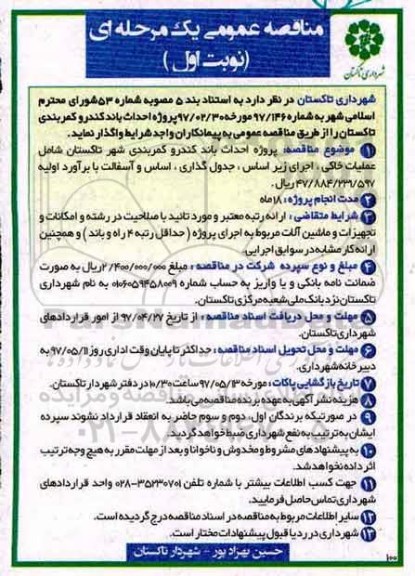 مناقصه عمومی یک مرحله ای
(نوبت اول)
شهرداری تاکستان
شهرداری تاکستان در نظر دارد به استناد بند ۵ مصوبه شماره ۵۳ شورای محترم
اسلامی شهر به شماره ۹۷/۱۴۶ مورخه ۹۷/۰۲/۳۰ پروژه احداث باند کندرو کمربندی
تاکستان را از طریق مناقصه عمومی به پیمانکاران واجد شرایط واگذار نماید.
۱ موضوع مناقصه: پروژه احداث باند کندرو کمربندی شهر تاکستان شامل
عملیات خاکی ، اجرای زیر اساس ، جدول گذاری ، اساس و آسفالت با برآورد اولیه
۴۷/۸۸۴/۲۳۹/۵۹۷ ریال.
۲ مدت انجام پروژه: ۱۸ ماه
۳ شرایط متقاضی: ارائه رتبه معتبر و مورد تائید با صلاحیت در رشته و امکانات و
تجهیزات و ماشین آلات مربوط به اجرای پروژه (حداقل رتبه ۴ راه و باند) و همچنین
ارائه کار مشابه در سوابق اجرایی.
۴ مبلغ و نوع سپرده شرکت در مناقصه: مبلغ ۲/۴۰۰/۰۰۰/۰۰۰ ریال به صورت
ضمانت نامه بانکی و یا واریز به حساب شماره ۰۱۰۶۰۵۹۴۵۸۰۰۹ به نام شهرداری
تاکستان نزد بانک ملی شعبه مرکزی تاکستان.
۵ مهلت و محل دریافت اسناد مناقصه: از تاریخ ۹۷/۰۴/۲۷ از امور قراردادهای
شهرداری تاکستان.
۶ مهلت و محل تحویل اسناد مناقصه: حداکثر تا پایان وقت اداری روز ۹۷/۰۵/۱۱ به
دبیرخانه شهرداری.
۷ تاریخ بازگشایی پاکات: مورخه ۹۷/۰۵/۱۳ ساعت ۱۰/۳۰ در دفتر شهردار تاکستان.
۸ هزینه نشر آگهی به عهده برنده مناقصه می باشد.
۹ در صورتیکه برندگان اول، دوم و سوم حاضر به انعقاد قرارداد نشوند سپرده
ایشان به ترتیب به نفع شهرداری ضبط خواهد گردید.
۱۰ به پیشنهادهای مشروط و مخدوش و ناخوانا و بعد از مهلت مقرر به هیچ وجه ترتیب
اثر داده نخواهد شد.
۱۱ جهت کسب اطلاعات بیشتر با شماره تلفن ۳۵۲۳۰۷۰۱-۰۲۸ واحد قراردادهای
شهرداری تماس حاصل فرمایید.
۱۲ سایر اطلاعات مربوط به مناقصه در اسناد مناقصه درج گردیده است.
۱۳ شهرداری در رد یا قبول پیشنهادات مختار است.
حسین بهزاد پور - شهردار تاکستان
۱۰۰